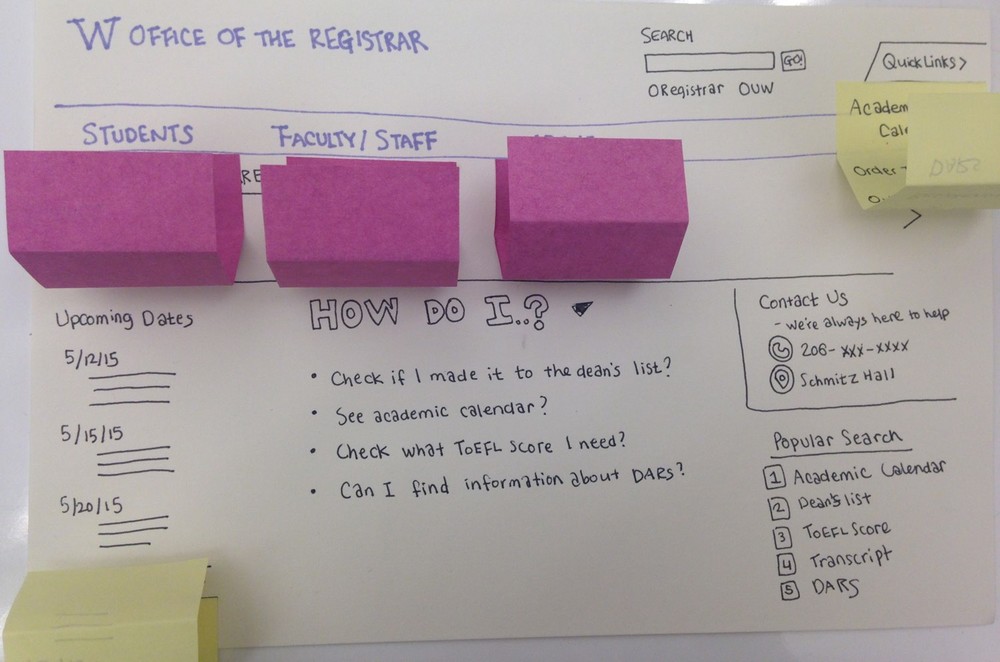 W OFFICE OF THE REGISTRAR
SEARCH
GO!
Registrar UW
QuickLinks >
STUDENTS FACULTY/STAFF
Academ
Cale
Order
RE
Upcoming Dates
5/12/15
5/15/15
5/20/15
HOW DO I..?
• Check if I made it to the dean's list?
• See academic calendar?
• Check what TOEFL Score I need?
• Can I find information about DARs?
Contact Us
- we're always here to help
206-xxx-xxxx
Schmitz Hall
Popular Search
1 Academic Calendar
2 Dean's list
3 TOEFL Score
4 Transcript
5 DARS